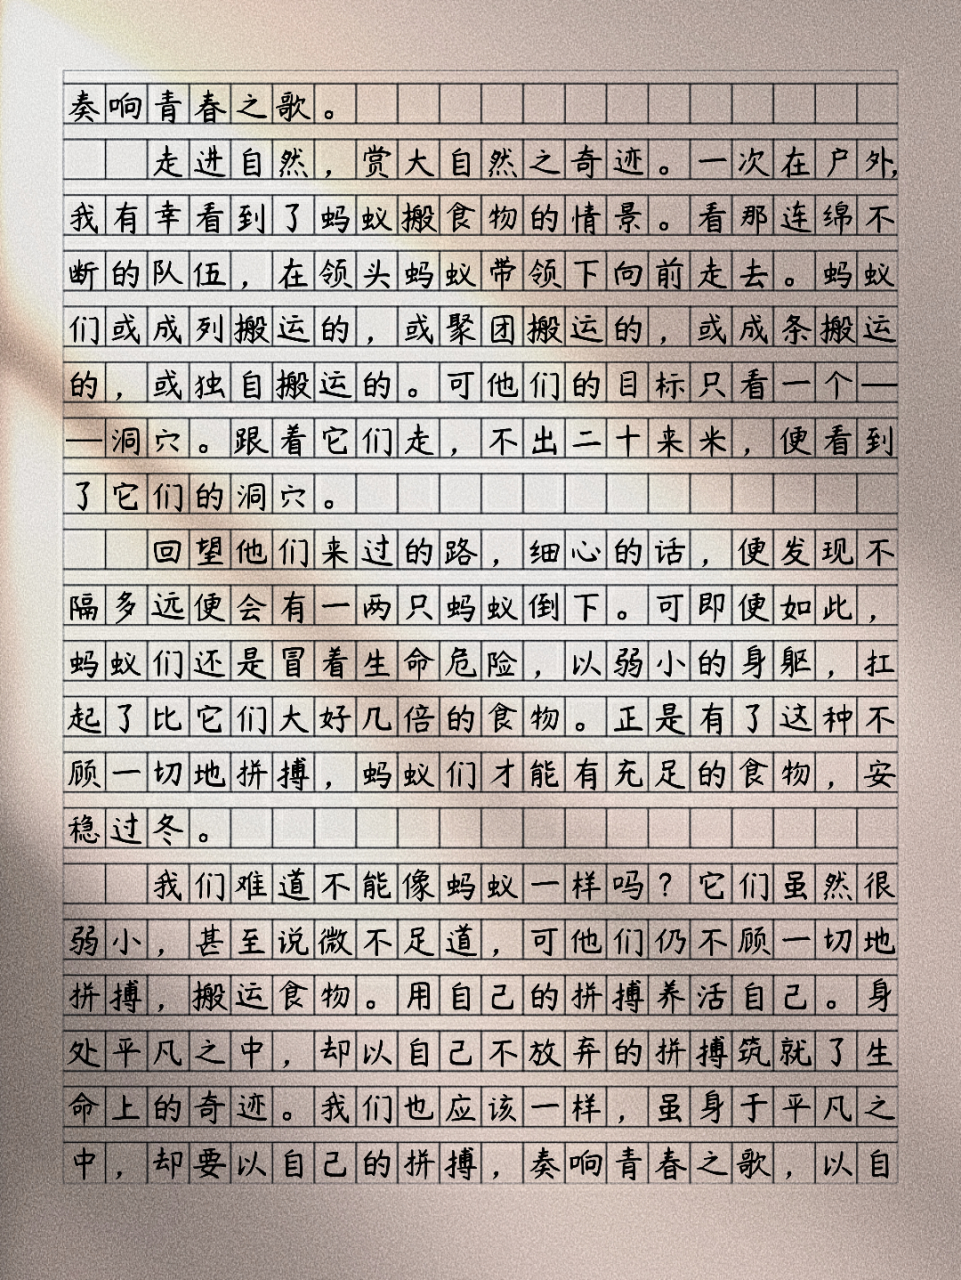 奏响青春之歌。
走进自然，赏大自然之奇迹。一次在户外，
我有幸看到了蚂蚁搬食物的情景。看那连绵不
断的队伍，在领头蚂蚁带领下向前走去。蚂蚁
们或成列搬运的，或聚团搬运的，或成条搬运
的，或独自搬运的。可他们的目标只看一个—
—洞穴。跟着它们走，不出二十来米，便看到
了它们的洞穴。
回望他们来过的路，细心的话，便发现不
隔多远便会有一两只蚂蚁倒下。可即便如此，
蚂蚁们还是冒着生命危险，以弱小的身躯，扛
起了比它们大好几倍的食物。正是有了这种不
顾一切地拼搏，蚂蚁们才能有充足的食物，安
稳过冬。
我们难道不能像蚂蚁一样吗？它们虽然很
弱小，甚至说微不足道，可他们仍不顾一切地
拼搏，搬运食物。用自己的拼搏养活自己。身
处平凡之中，却以自己不放弃的拼搏筑就了生
命上的奇迹。我们也应该一样，虽身于平凡之
中，却要以自己的拼搏，奏响青春之歌，以自